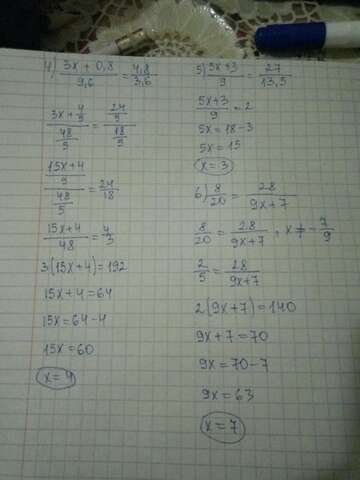 4) (3x + 0,8)/9,6 = 4,8/3,6
(3x + 4/5)/(48/5) = (24/5)/(18/5)
((15x+4)/5)/(48/5) = 24/18
(15x+4)/48 = 4/3
3(15x+4)=192
15x+4=64
15x=64-4
15x=60
x=4
5) (5x+3)/9 = 27/13,5
(5x+3)/9 = 2
5x=18-3
5x=15
x=3
6) 8/20 = 28/(9x+7)
8/20 = 28/(9x+7) , x≠-7/9
2/5 = 28/(9x+7)
2(9x+7)=140
9x+7=70
9x=70-7
9x=63
x=7